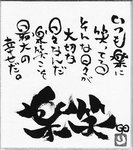 いつも楽に
笑ってる
そんな日々が
大切な
日々なんだ
最大の
幸せだ。
楽笑